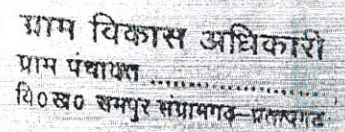 ग्राम विकास अधिकारी
ग्राम पंचायत ........................
वि0ख0 रामपुर संग्रामगढ़-प्रतापगढ़